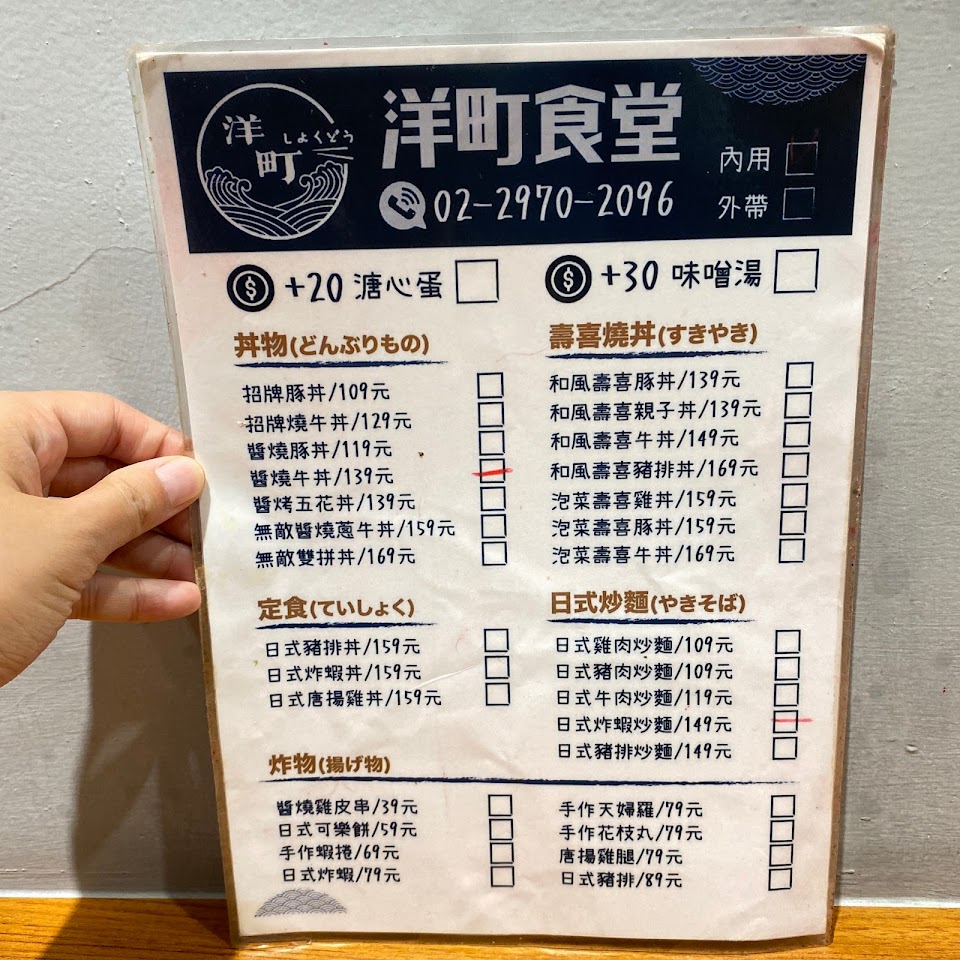 洋町
しょくどう
洋町食堂
02-2970-2096
內用
外帶
+20 溏心蛋
+30 味噌湯
丼物(どんぶりもの)
招牌豚丼/109元
招牌燒牛丼/129元
醬燒豚丼/119元
醬燒牛丼/139元
醬烤五花丼/139元
無敵醬燒蔥牛丼/159元
無敵雙拼丼/169元
壽喜燒丼(すきやき)
和風壽喜豚丼/139元
和風壽喜親子丼/139元
和風壽喜牛丼/149元
和風壽喜豬排丼/169元
泡菜壽喜雞丼/159元
泡菜壽喜豚丼/159元
泡菜壽喜牛丼/169元
定食(ていしょく)
日式豬排丼/159元
日式炸蝦丼/159元
日式唐揚雞丼/159元
日式炒麵(やきそば)
日式雞肉炒麵/109元
日式豬肉炒麵/109元
日式牛肉炒麵/119元
日式炸蝦炒麵/149元
日式豬排炒麵/149元
炸物(揚げ物)
醬燒雞皮串/39元
日式可樂餅/59元
手作蝦捲/69元
日式炸蝦/79元
手作天婦羅/79元
手作花枝丸/79元
唐揚雞腿/79元
日式豬排/89元